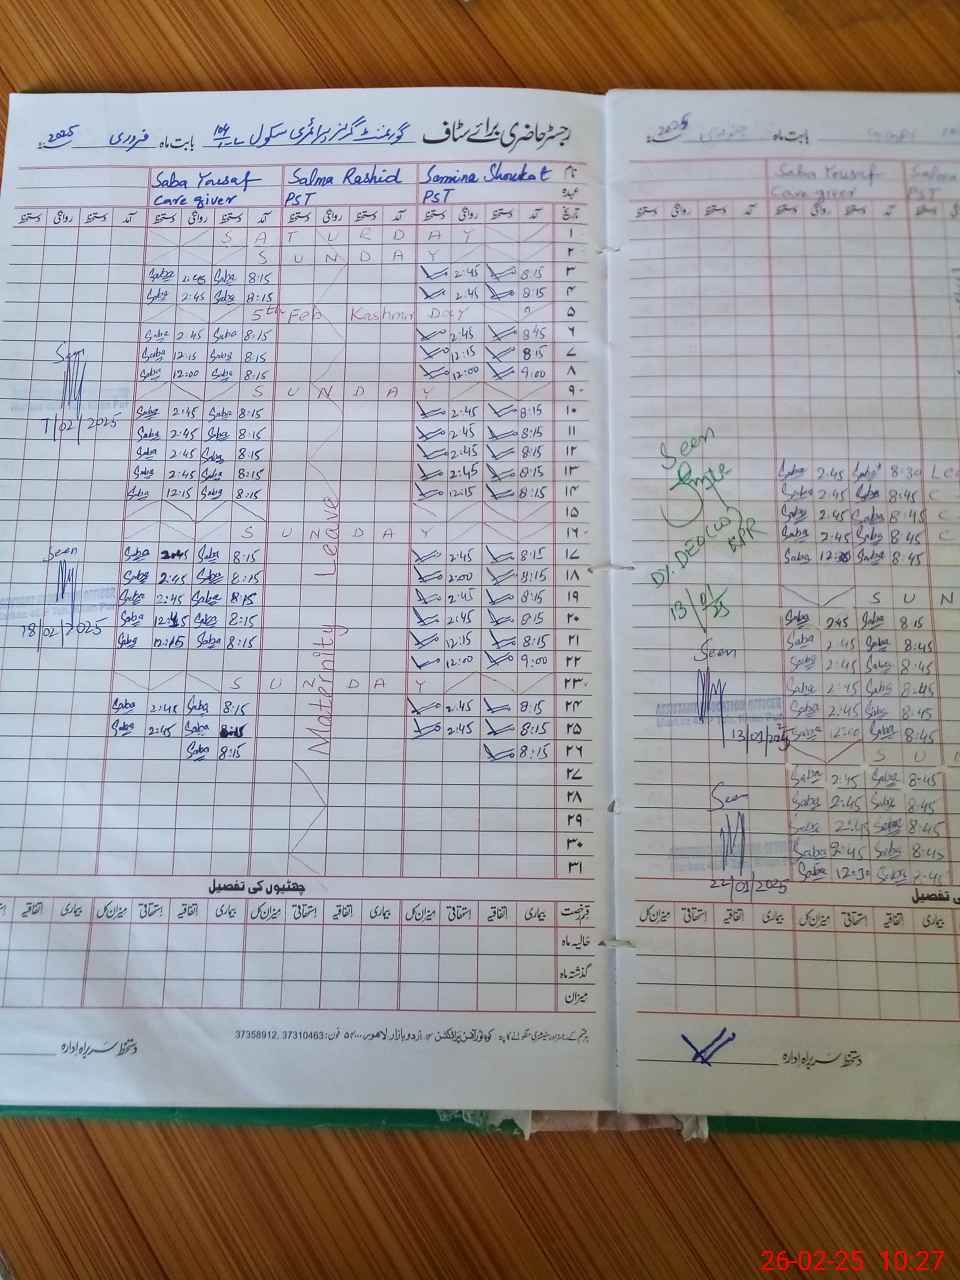 رجسٹر حاضری برائے سٹاف گورنمنٹ گرلز پرائمری سکول 104 بابت ماہ فروری 2025
نام Samina Shoukat Salma Rashid Saba Yousaf
عہدہ PST PST Care giver
تاریخ آمد دستخط روانگی دستخط آمد دستخط روانگی دستخط آمد دستخط روانگی دستخط آمد دستخط روانگی دستخط
۱ SATURDAY
۲ SUNDAY
۳ 8:15 2:45 8:15 Saba 2:45 Saba
۴ 8:15 2:45 8:15 Saba 2:45 Saba
۵ 5th Feb Kashmir Day
۶ 8:45 2:45 8:15 Saba 2:45 Saba
۷ 8:15 12:15 8:15 Saba 12:15 Saba
۸ 9:00 12:00 8:15 Saba 12:00 Saba
۹ SUNDAY
۱۰ 8:15 2:45 8:15 Saba 2:45 Saba
۱۱ 8:15 2:45 8:15 Saba 2:45 Saba
۱۲ 8:15 2:45 8:15 Saba 2:45 Saba
۱۳ 8:15 2:45 8:15 Saba 2:45 Saba
۱۴ 8:15 12:15 8:15 Saba 12:15 Saba
۱۵
۱۶ SUNDAY
۱۷ 8:15 2:45 8:15 Saba 2:45 Saba
۱۸ 8:15 2:00 8:15 Saba 2:45 Saba
۱۹ 8:15 2:45 8:15 Saba 2:45 Saba
۲۰ 8:15 2:45 8:15 Saba Saba
۲۱ 8:15 12:15 8:15 Saba 12:15 Saba
۲۲ 9:00 12:00
۲۳ SUNDAY
۲۴ 8:15 2:45 8:15 Saba 2:45 Saba
۲۵ 8:15 2:45 8:15 Saba 2:45 Saba
۲۶ 8:15 8:15 Saba
۲۷
۲۸
۲۹
۳۰
۳۱
Maternity Leave
Seen
7/02/2025
Seen
18/02/2025
چھٹیوں کی تفصیل
قسم رخصت بیماری اتفاقیہ استحقاقی میزان کل بیماری اتفاقیہ استحقاقی میزان کل بیماری اتفاقیہ استحقاقی میزان کل بیماری
حالیہ ماہ
گذشتہ ماہ
میزان
37358912, 37310463
دستخط سربراہ ادارہ
بابت ماہ
Saba Yousaf
Care giver PST
آمد دستخط روانگی دستخط
8:30 Saba 2:45 Saba
8:45 Saba 2:45 Saba
8:45 Saba 2:45 Saba
8:45 Saba 2:45 Saba
8:45 Saba Saba
SUN
8:15 Saba 2:45 Saba
8:45 Saba 2:45 Saba
8:45 Saba 2:45 Saba
8:45 Saba 2:45 Saba
8:45 Saba 2:45 Saba
8:45 Saba Saba
SU
8:45 Saba 2:45 Saba
8:45 Saba 2:45 Saba
8:45 Saba 2:45 Saba
8:45 Saba 2:45 Saba
Saba 12:30 Saba
Seen
Dy. DEO (W)
KPR
Seen
13/01/2025
Seen
22/01/2025
چھٹیوں کی تفصیل
بیماری اتفاقیہ استحقاقی میزان کل بیماری اتفاقیہ استحقاقی میزان کل
دستخط سربراہ ادارہ
26-02-25 10:27